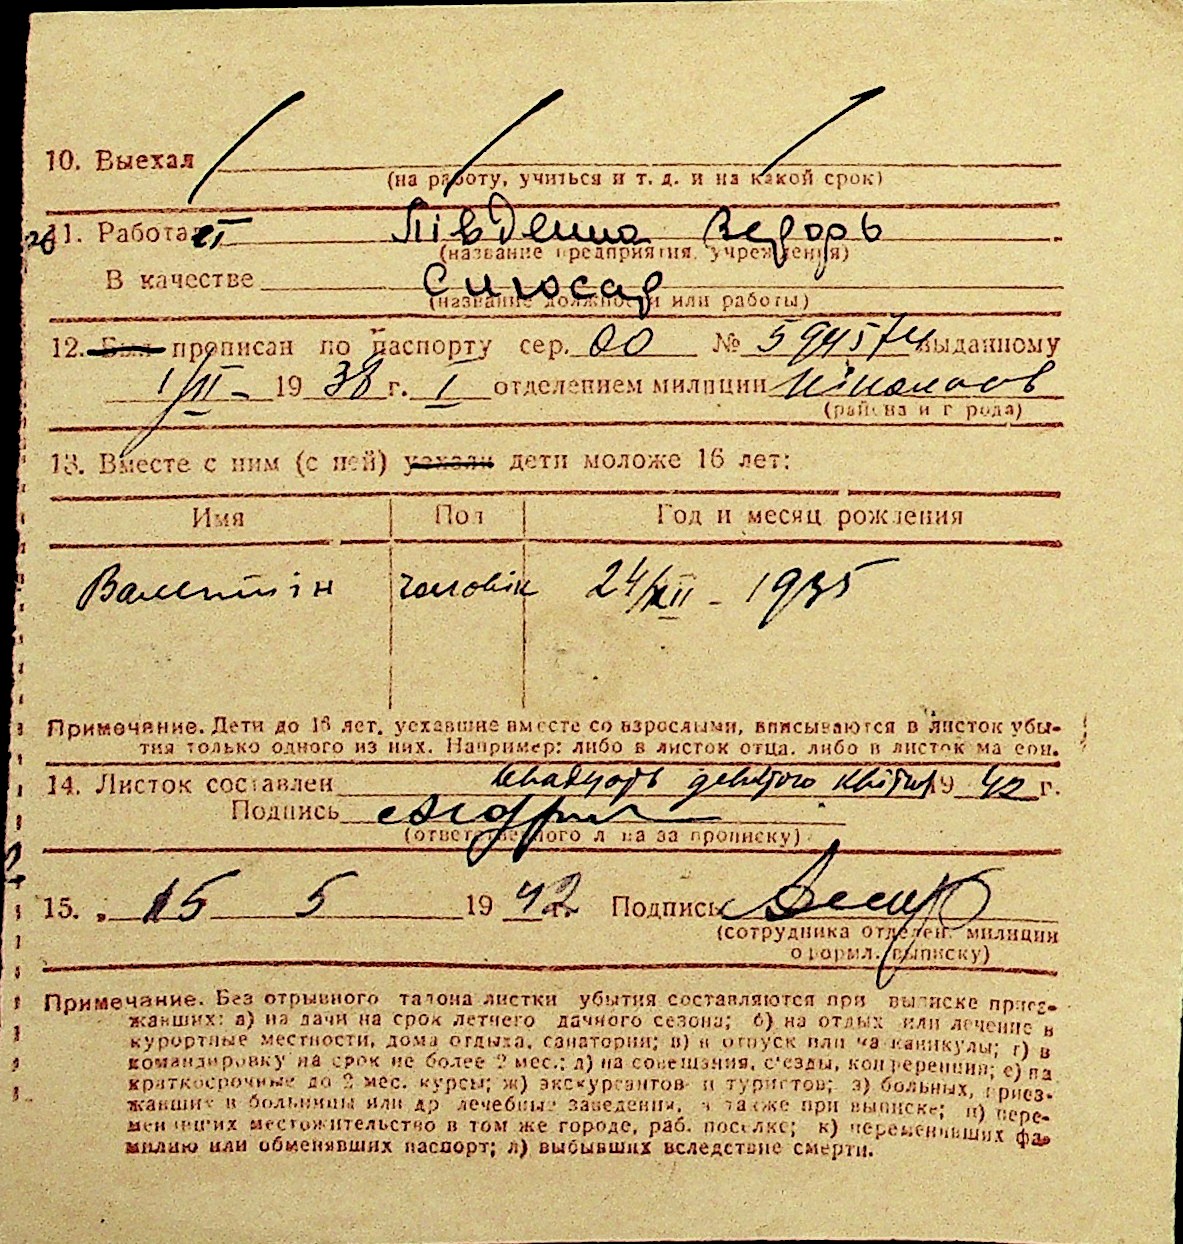 10. Выехал
(на работу, учиться и т. д. и на какой срок)
11. Работает Південна Верфь
(название предприятия, учреждения)
В качестве Слюсар
(название должности или работы)
12. Был прописан по паспорту сер. 00 № 594574 выданному
1/II - 1938 г. I отделением милиции Ніколаєв
(района и города)
13. Вместе с ним (с ней) уехали дети моложе 16 лет:
Имя Пол Год и месяц рождения
Валентін чоловік 24/XII - 1935
Примечание. Дети до 16 лет, уехавшие вместе со взрослыми, вписываются в листок убы-
тия только одного из них. Например: либо в листок отца, либо в листок матери.
14. Листок составлен двадцять девятого квітня 1942 г.
Подпись
(ответственного лица за прописку)
15. „ 15 5 1942 г. Подпись
(сотрудника отделен. милиции
оформл. выписку)
Примечание. Без отрывного талона листки убытия составляются при выписке приез-
жавших: а) на дачи на срок летнего дачного сезона; б) на отдых или лечение в
курортные местности, дома отдыха, санатории; в) в отпуск или на каникулы; г) в
командировку на срок не более 2 мес.; д) на совещания, съезды, конференции; е) на
краткосрочные до 2 мес. курсы; ж) экскурсантов и туристов; з) больных, приез-
жавших в больницы или др лечебные заведения, а также при выписке; и) пере-
менивших местожительство в том же городе, раб. поселке; к) переменивших фа-
милию или обменявших паспорт; л) выбывших вследствие смерти.